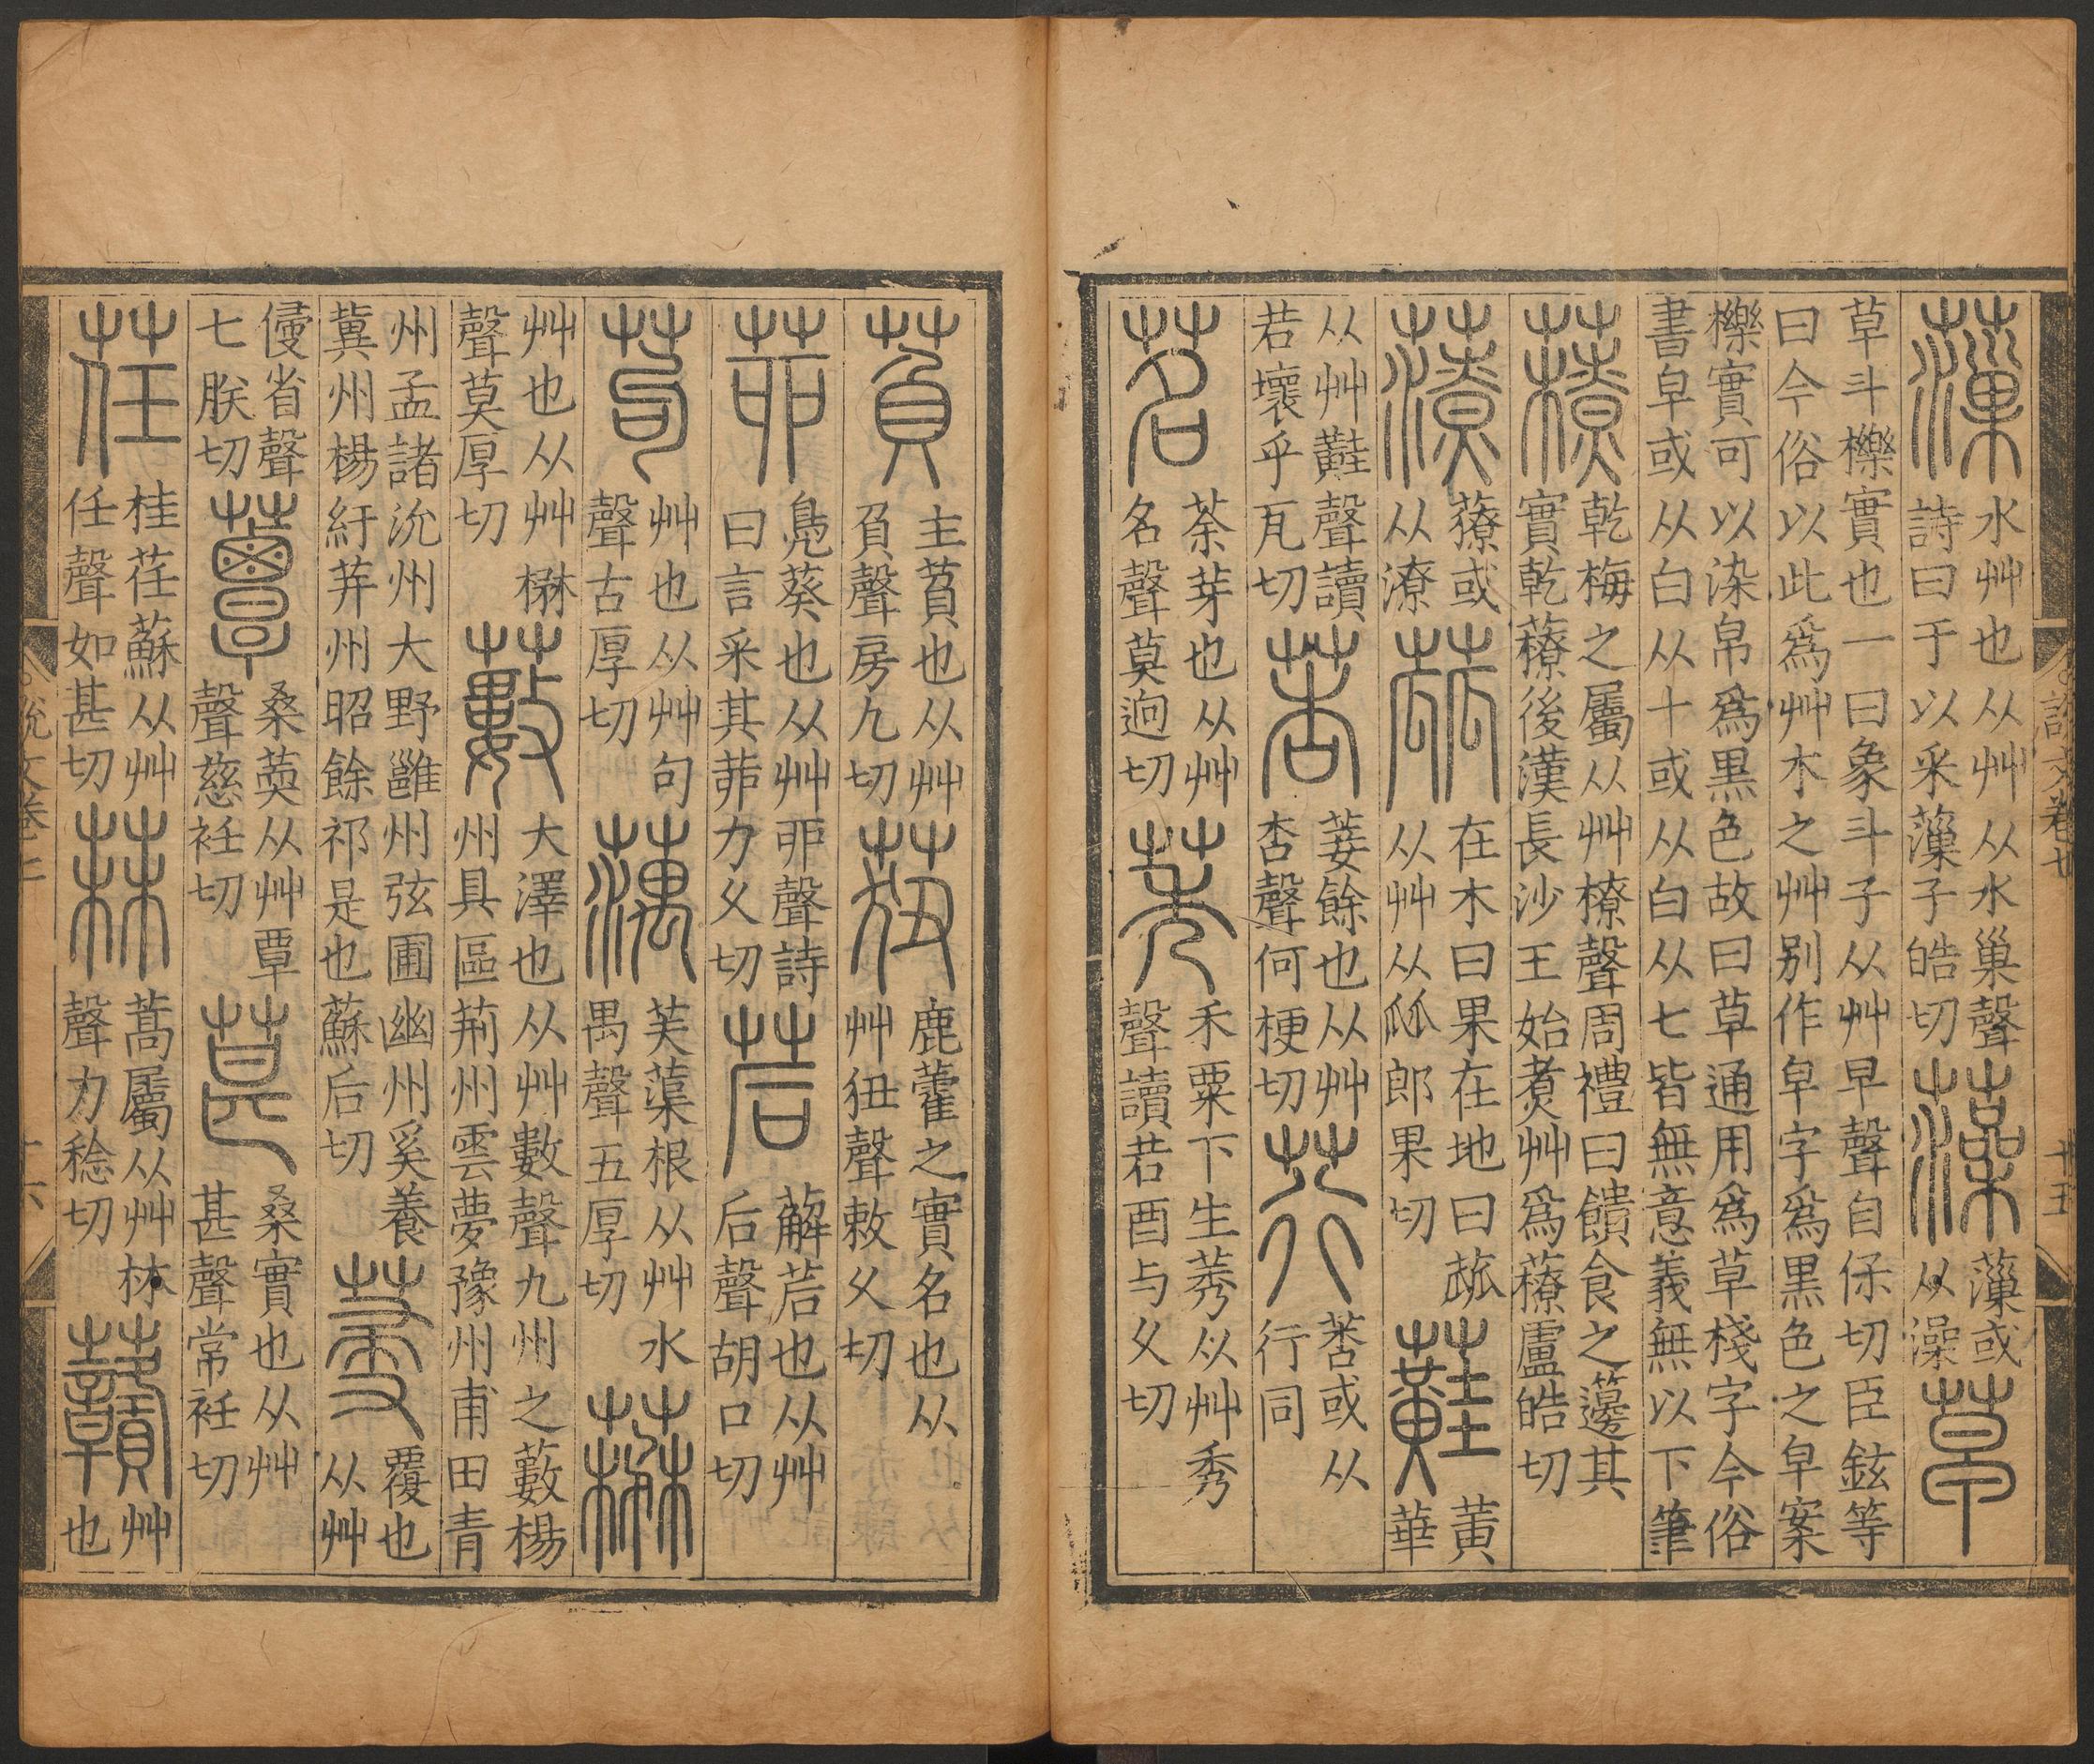 薻 水艸也从艸从水巢聲
詩曰于以采薻子皓切
藻 薻或
从澡
草
草斗櫟實也一曰象斗子从艸早聲自保切臣鉉等
曰今俗以此爲艸木之艸别作皁字爲黑色之皁案
櫟實可以染帛爲黑色故曰草通用爲草棧字今俗
書皁或从白从十或从白从七皆無意義無以下筆
䕩 乾梅之屬从艸橑聲周禮曰饋食之籩其
實乾䕩後漢長沙王始煮艸爲䕩盧皓切
䕩或
从潦
蓏 在木曰果在地曰蓏
从艸从㼌郎果切
蘳 黄
華
从艸黊聲讀
若壞乎瓦切
莕 菨餘也从艸
杏聲何梗切
荇 莕或从
行同
茗 荼芽也从艸
名聲莫迥切
莠 禾粟下生莠从艸秀
聲讀若酉与久切
十五
萯 主萯也从艸
負聲房九切
莥 鹿藿之實名也从
艸狃聲敕久切
茆 鳧葵也从艸丣聲詩
曰言采其茆力久切
茩 薢茩也从艸
后聲胡口切
苟 艸也从艸句
聲古厚切
蕅 芙蕖根从艸水
禺聲五厚切
艸也从艸楙
聲莫厚切
藪 大澤也从艸數聲九州之藪楊
州具區荊州雲夢豫州甫田青
州孟諸沇州大野雝州弦圃幽州奚養
冀州楊紆并州昭餘祁是也蘇后切
覆也
从艸
侵省聲
七朕切
蕈 桑䓴从艸覃
聲慈衽切
葚 桑實也从艸
甚聲常衽切
荏 桂荏蘇从艸
任聲如甚切
菻 蒿屬从艸林
聲力稔切
艸
也
十六